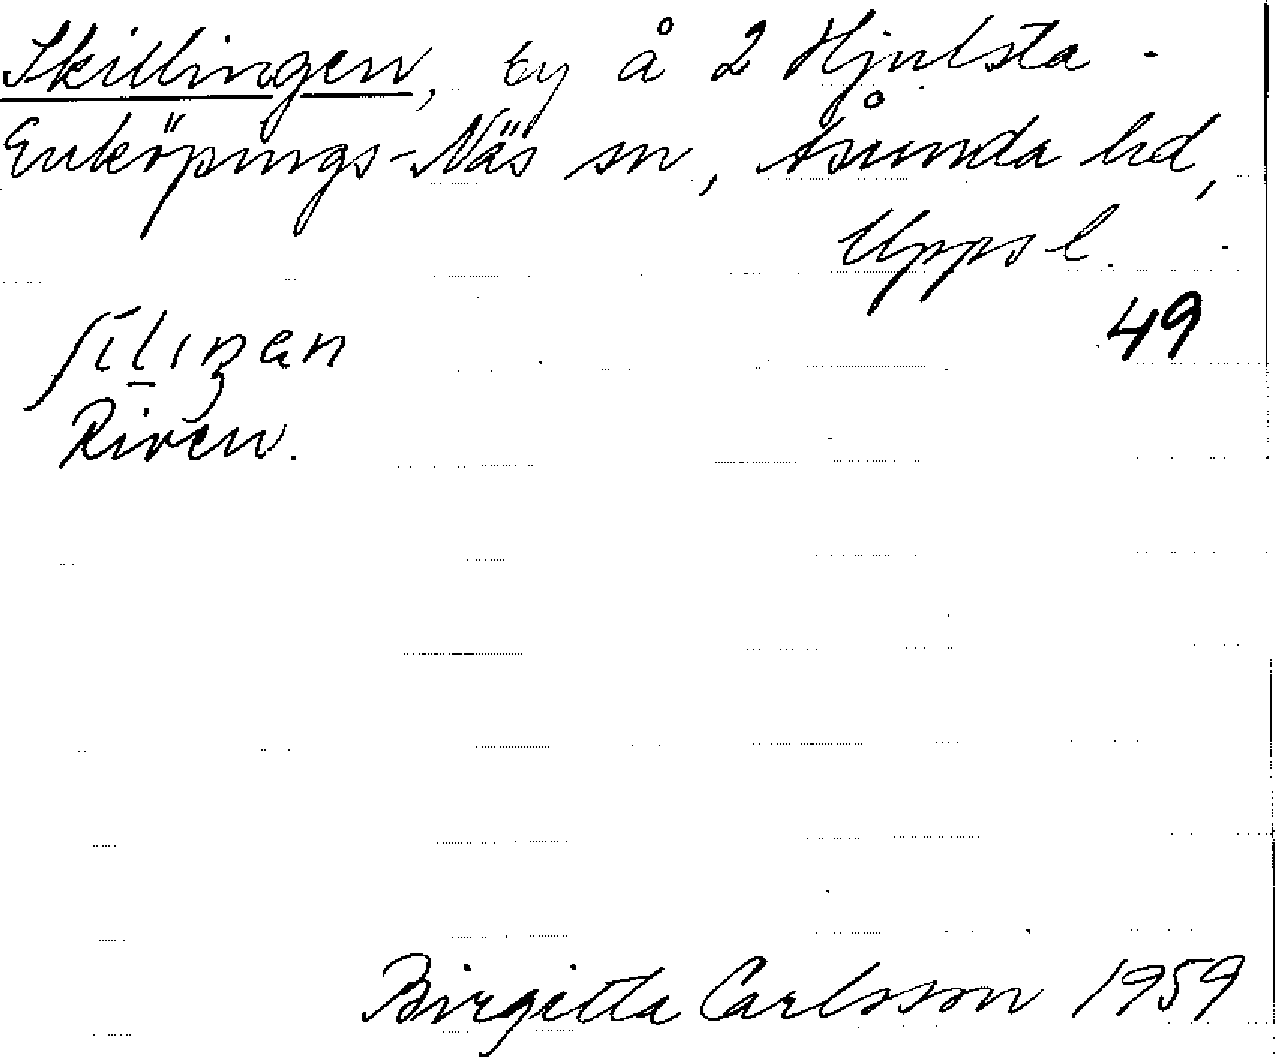 Skillingen, by å 2 Hjulsta -
Enköpings-Näs sn, Åsunda hd,
Upps l.
49
ʃíl̲ıŋen
Riven.
Birgitta Carlsson 1959